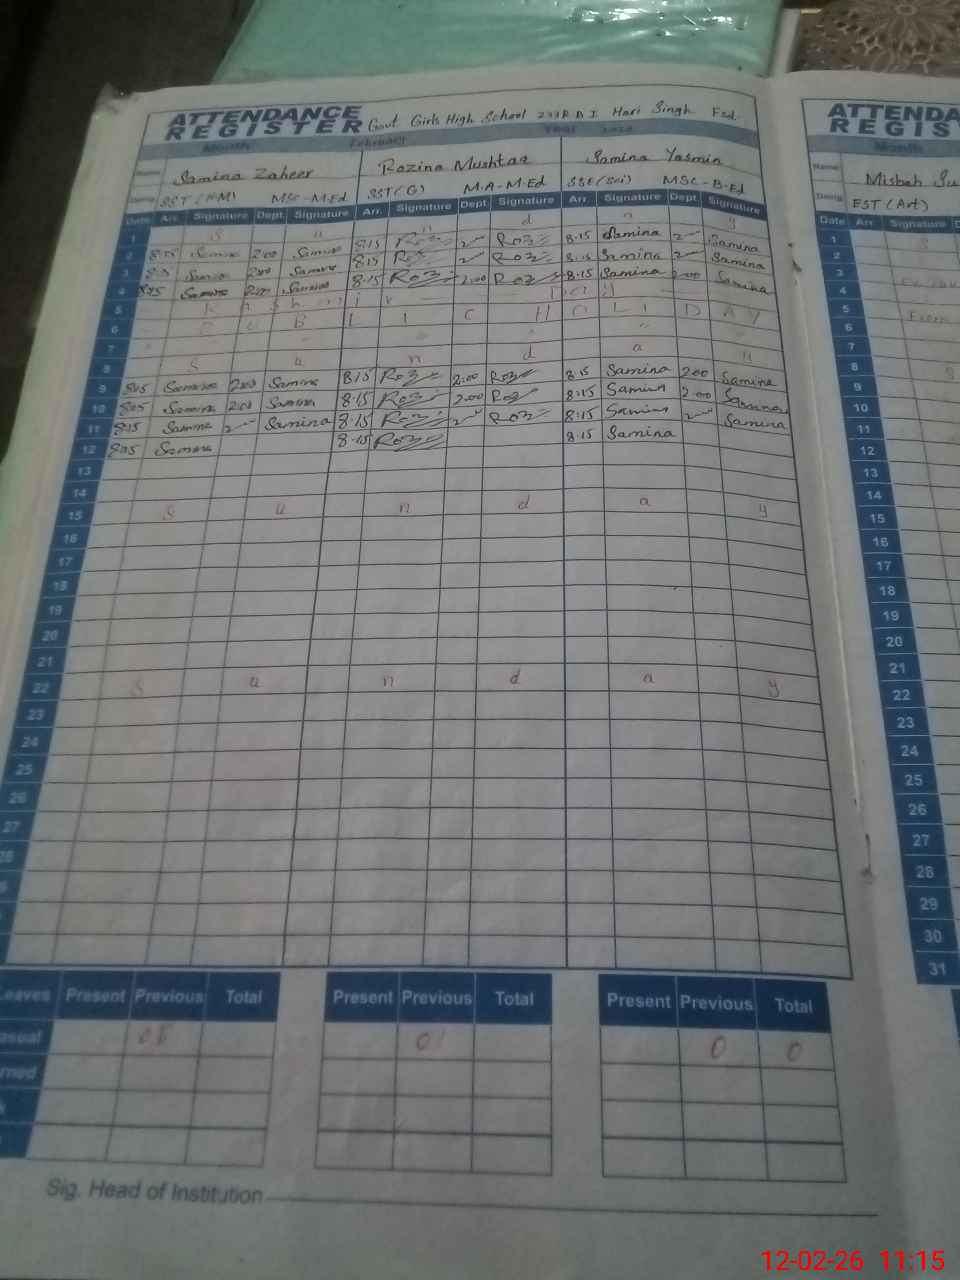 ATTENDANCE
REGISTER Govt Girls High School Hari Singh Fsd.
Month February Year
Name Samina Zaheer Rozina Mushtaq Samina Yasmin
Desig SST (HM) MSc-M.Ed SST(G) M.A-M.Ed SSE(Sci) MSC-B-Ed
Date Arr. Signature Dept. Signature Arr. Signature Dept Signature Arr. Signature Dept. Signature
1 S u n d a y
2 8:15 Samina 2:00 Samina 8:15 Roz 2 Roz 8.15 Samina 2 Samina
3 8:15 Samina 2:00 Samina 8:15 Roz 2 Roz 8.15 Samina 2 Samina
4 8:15 Samina 2:00 Samina 8.15 Roz 2:00 Roz 8.15 Samina 2:00 Samina
5 K a s h m i r D a y
6 P U B L I C H O L I D A Y
7 " " " "
8 S u n d a y
9 8:15 Samina 2:00 Samina 8:15 Roz 2:00 Roz 8.15 Samina 2:00 Samina
10 8:15 Samina 2:00 Samina 8.15 Roz 2:00 Roz 8:15 Samina 2:00 Samina
11 8:15 Samina 2 Samina 8.15 Roz 2 Roz 8:15 Samina 2 Samina
12 8:15 Samina 8.15 Roz 8.15 Samina
13
14
15 S u n d a y
16
17
18
19
20
21
22 S u n d a y
23
24
25
26
27
28
Leaves Present Previous Total Present Previous Total Present Previous Total
Casual 01 0 0
Sig. Head of Institution
ATTENDA
REGIS
Month
Name Misbah
Desig EST (Art)
Date Arr Signature
1
2
3
4
5
6
7
8
9
10
11
12
13
14
15
16
17
18
19
20
21
22
23
24
25
26
27
28
29
30
31
12-02-26 11:15